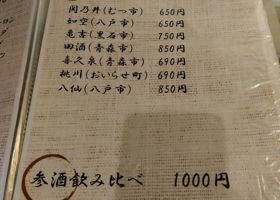 関乃井(むつ市) 650円
如空(八戸市) 650円
亀吉(黒石市) 750円
田酒(青森市) 850円
喜久泉(青森市) 690円
桃川(おいらせ町) 690円
八仙(八戸市) 850円
参酒飲み比べ 1000円